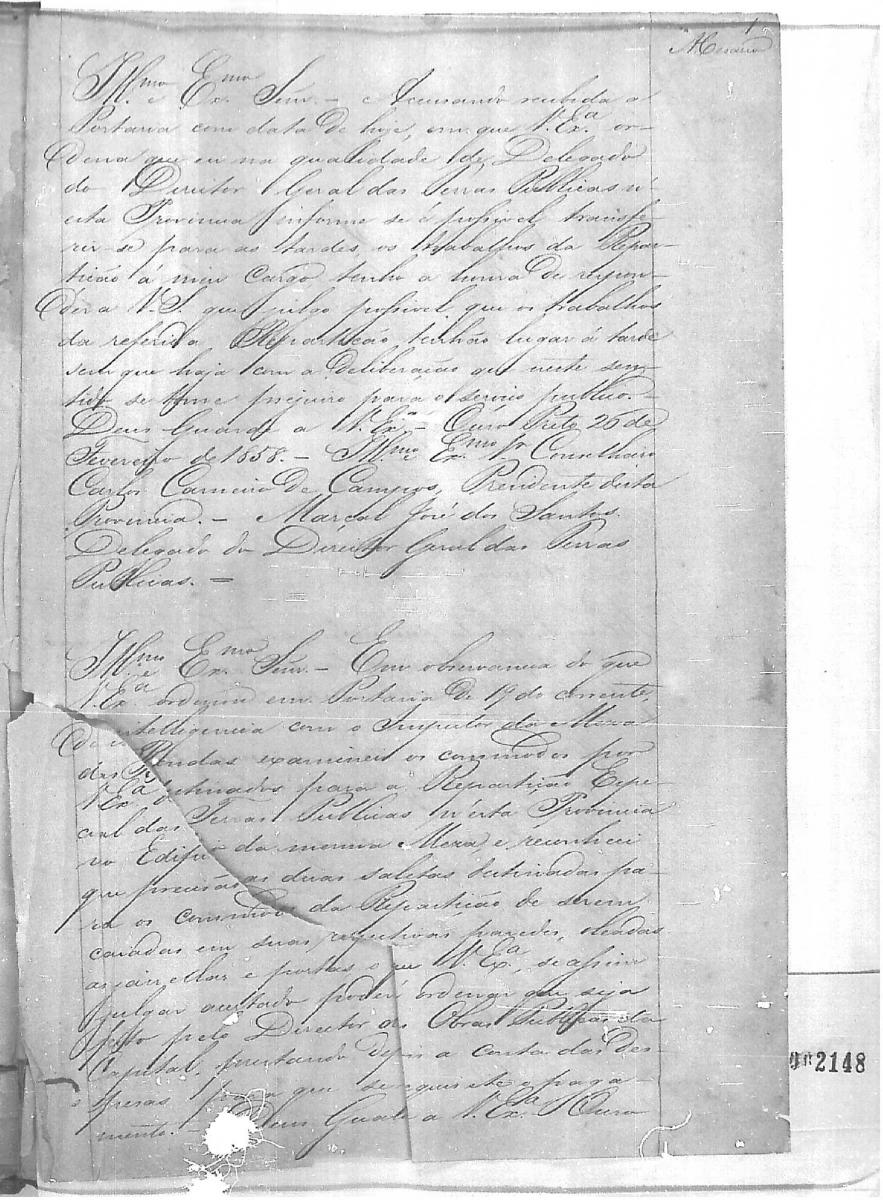 1
Ill.mo e Ex.mo Snr. – Accusando recebida a
Portaria com data de hoje, em que V. Ex.a or-
dena que eu na qualidade de Delegado
do Director Geral das Terras Publicas n'-
esta Provincia informe se é possivel transfe-
rir-se para as tardes, os trabalhos da Repar-
tição á meu cargo, tenho a honra de respon-
der a V. S. que julgo possivel, que os trabalhos
da referida Repartição tenhão lugar á tarde
sem que haja com a deliberação que neste sen-
tido se tome prejuiso para o serviço publico. –
Deus Guarde a V. Ex.a – Ouro Preto 26 de
Fevereiro de 1858. – Ill.mo e Ex.mo Sr. Conselheiro
Carlos Carneiro de Campos, Presidente desta
Provincia. – Marçal José dos Santos.
Delegado do Director Geral das Terras
Publicas. –
Ill.mo e Ex.mo Snr. – Em observancia do que
V. Ex.a ordenou em Portaria de 19 do corrente,
de intelligencia com o Inspector da Meza
das Rendas examinei os commodos por
V. Ex.a destinados para a Repartição Espe-
cial das Terras Publicas n'esta Provincia
no Edificio da mesma Meza, e reconheci
que precisão as duas saletas destinadas pa-
ra os commodos da Repartição de serem
caiadas em suas respectivas paredes, oleadas
as janellas e portas o que V. Ex.a, se assim
julgar acertado poderá ordenar que seja
feito pelo Director das Obras Publicas da
Capital, prestando depois a conta das des-
pesas para que se requisite o paga-
mento. – Deus Guarde a V. Ex.a Ouro
002148